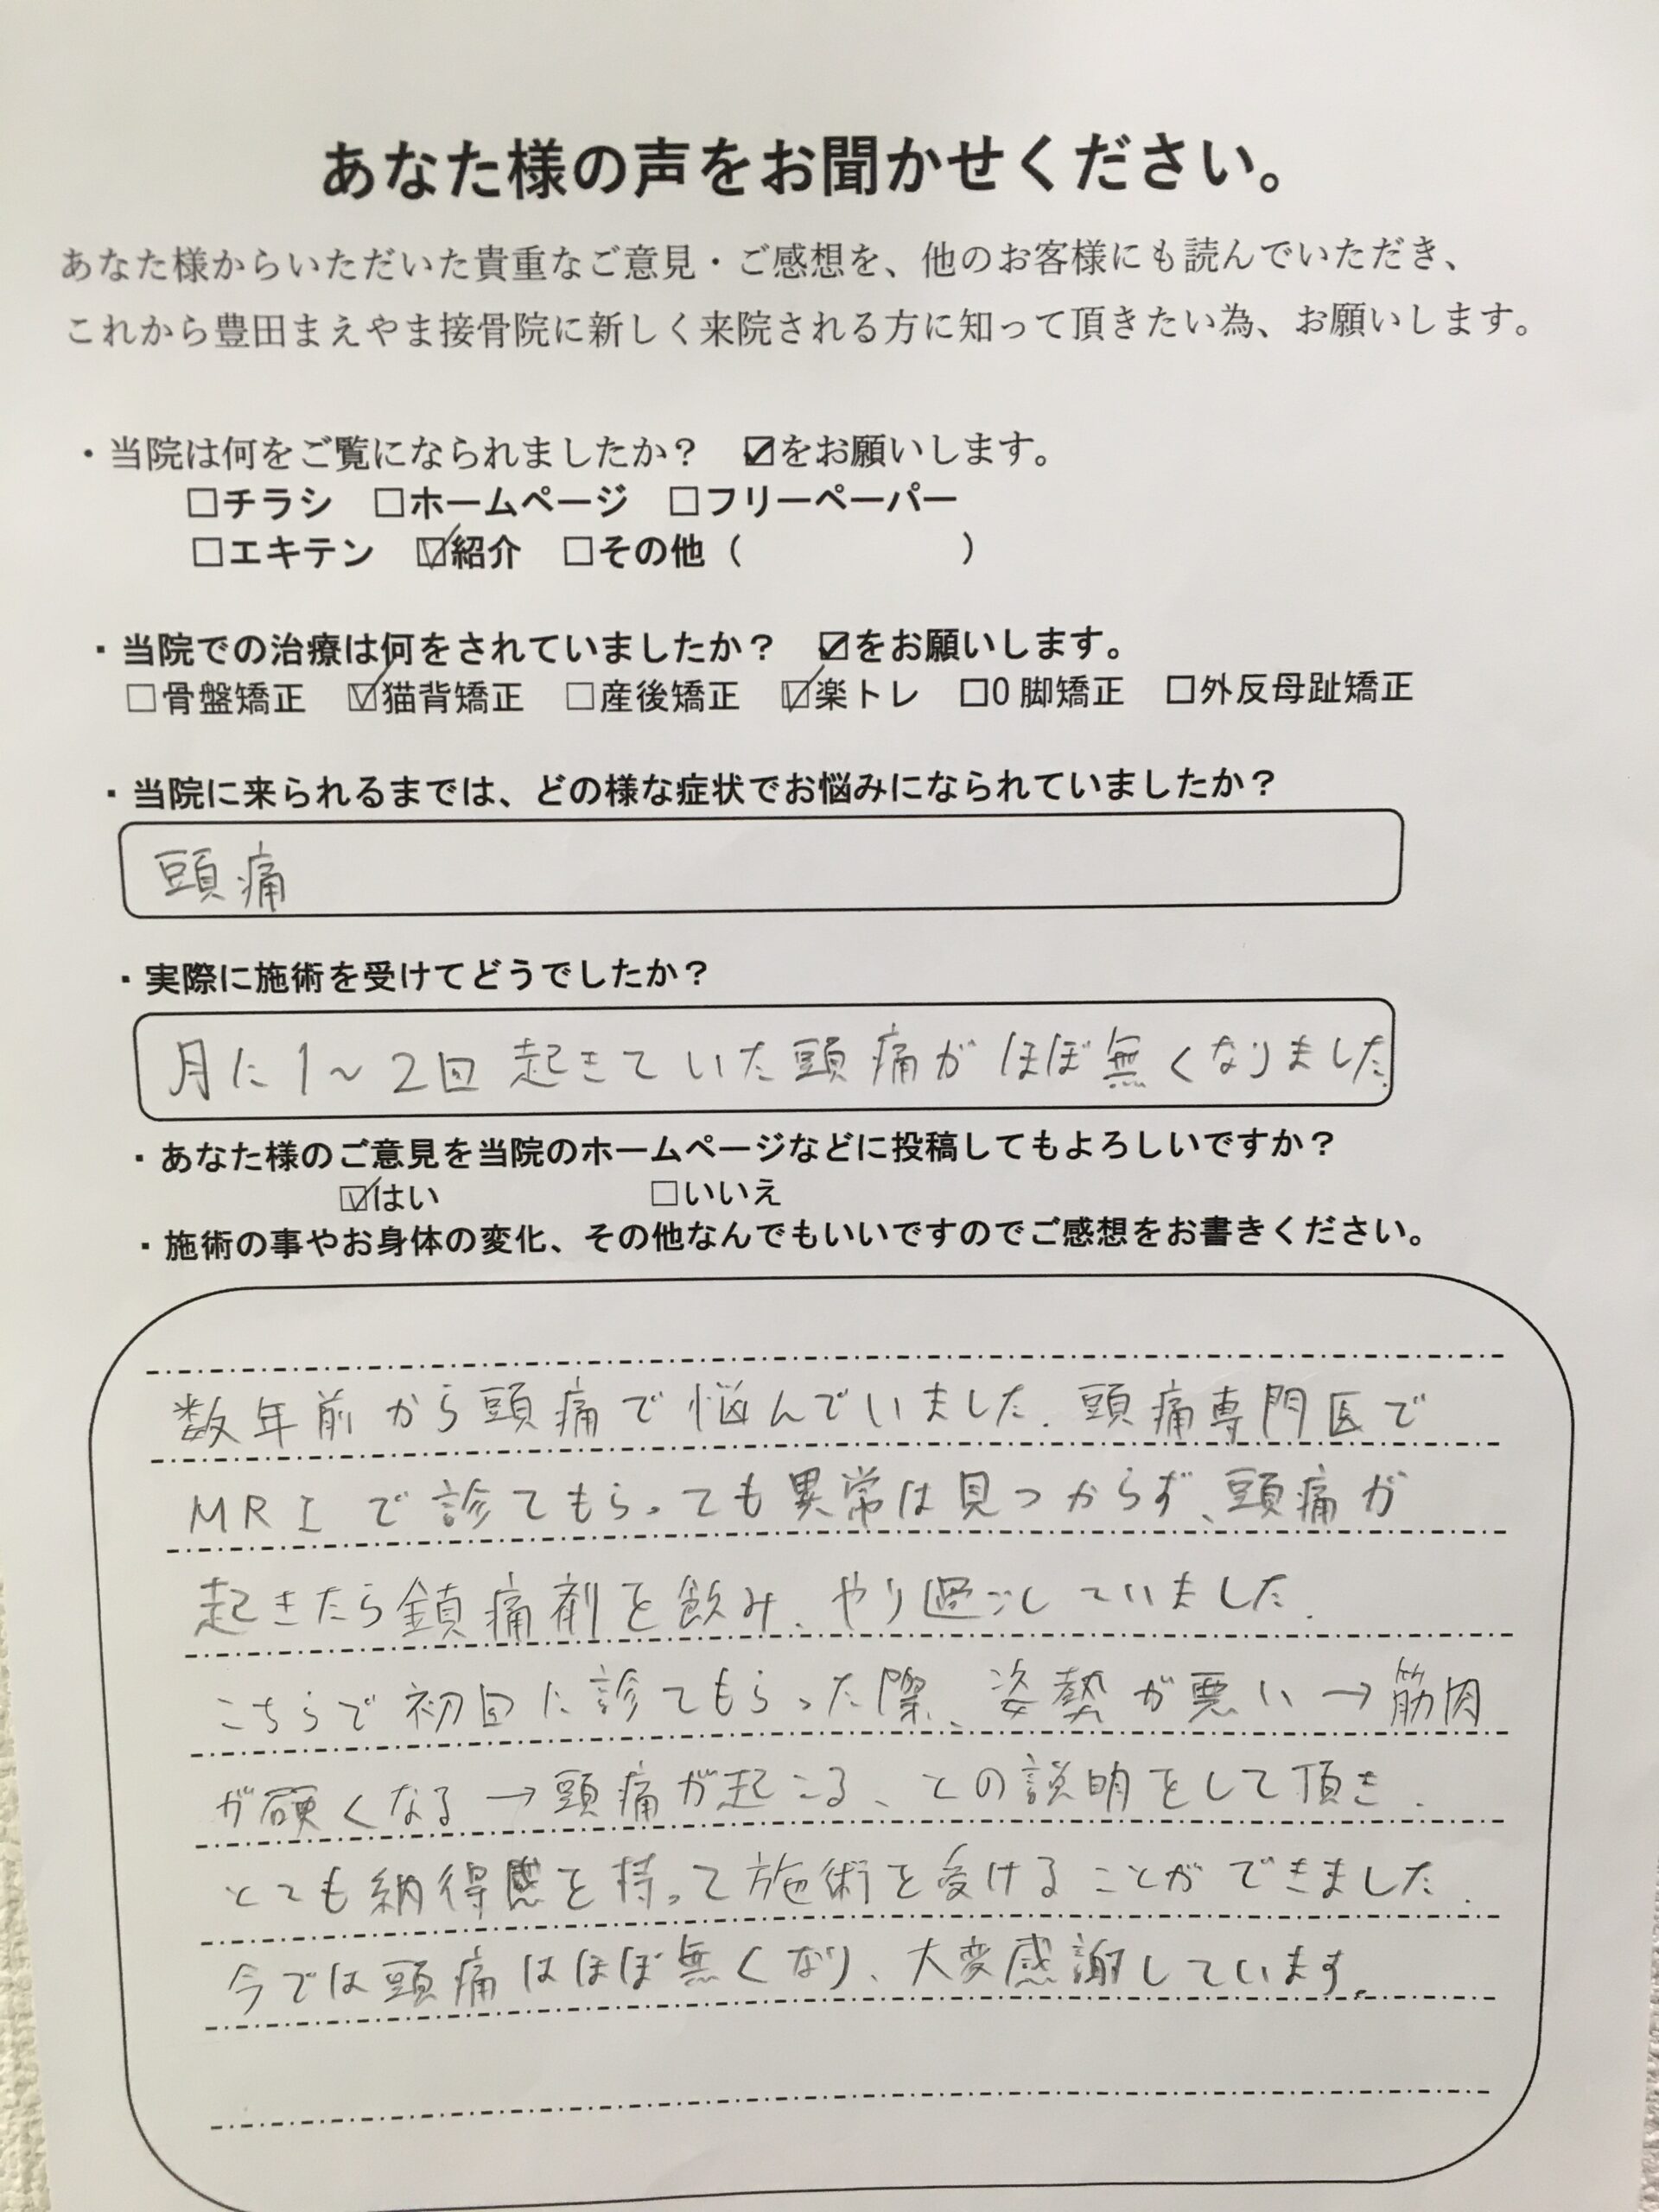 あなた様の声をお聞かせください。
あなた様からいただいた貴重なご意見・ご感想を、他のお客様にも読んでいただき、
これから豊田まえやま接骨院に新しく来院される方に知って頂きたい為、お願いします。
・当院は何をご覧になられましたか？ ☑をお願いします。
□チラシ □ホームページ □フリーペーパー
□エキテン ☑紹介 □その他（ ）
・当院での治療は何をされていましたか？ ☑をお願いします。
□骨盤矯正 ☑猫背矯正 □産後矯正 ☑楽トレ □O脚矯正 □外反母趾矯正
・当院に来られるまでは、どの様な症状でお悩みになられていましたか？
頭痛
・実際に施術を受けてどうでしたか？
月に1～2回起きていた頭痛がほぼ無くなりました。
・あなた様のご意見を当院のホームページなどに投稿してもよろしいですか？
☑はい □いいえ
・施術の事やお身体の変化、その他なんでもいいですのでご感想をお書きください。
数年前から頭痛で悩んでいました。頭痛専門医で
MRIで診てもらっても異常は見つからず、頭痛が
起きたら鎮痛剤を飲み、やり過ごしていました。
こちらで初回に診てもらった際、姿勢が悪い→筋肉
が硬くなる→頭痛が起こる、との説明をして頂き、
とても納得感を持って施術を受けることができました。
今では頭痛はほぼ無くなり、大変感謝しています。